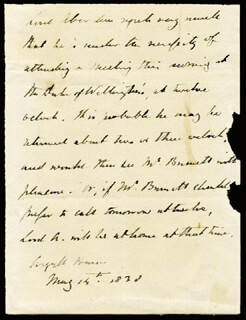 Lord Aberdeen regrets very much
that he is under the necessity of
attending a meeting this morning at
the Duke of Wellington's, at twelve
o'clock. It is probable he may be
returned about two or three o'clock,
and would then see Mr Burnett with
pleasure. Or, if Mr Burnett should
prefer to call tomorrow at twelve,
Lord A. will be at home at that time.
Argyll House
May 14th 1828